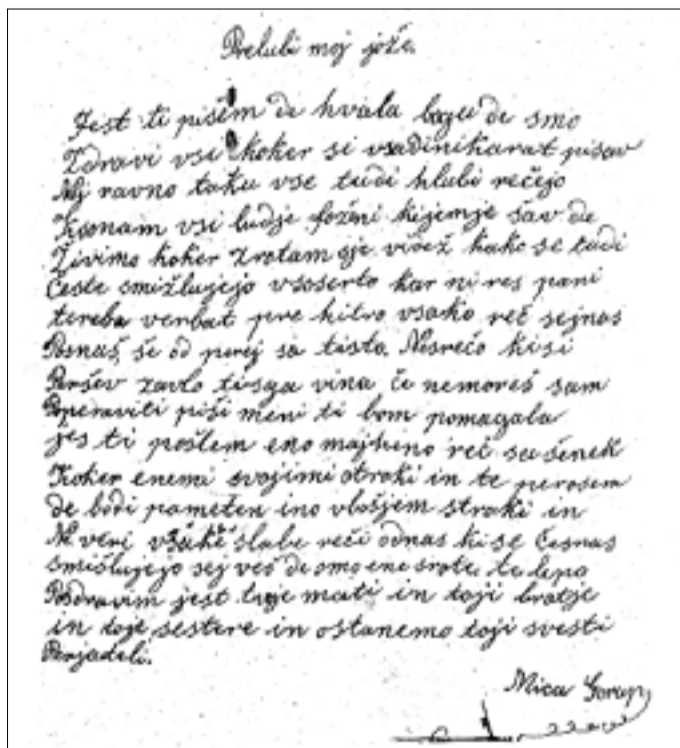 Prelubi moj jože.
Jest ti pišem de hvala bogu de smo
Zdravi vsi koker si vsadinikarat pisav
Mej ravno taku vse tudi hlubi rečejo
vsi ludje kijemje šav de
Živimo koker zrotam oje vičež kako se tudi
Česte smižlujejo vsoserto kar ni res pani
tereba verbat pre hitro vsako reč sejnas
Posnaš, še od perej sa tisto. Nesrečo kisi
Peršev zavlo tisga vina če nemoreš sam
Poperaviti piši meni ti bom pomagala
jes ti pošlem eno majheno reč sa šenek
Koker enemi svojimi otroki in te perosem
de bodi pameten ino vlošjem stroki in
Ne veri vsake slabe reči odnas ki se česnas
smišlujejo sej veš de smo ene srote. te lepo
Posdravim jest tvoje mati in toji bratje
in toje sestere in ostanemo toji svesti
Perjadeli.
Mica Gorup